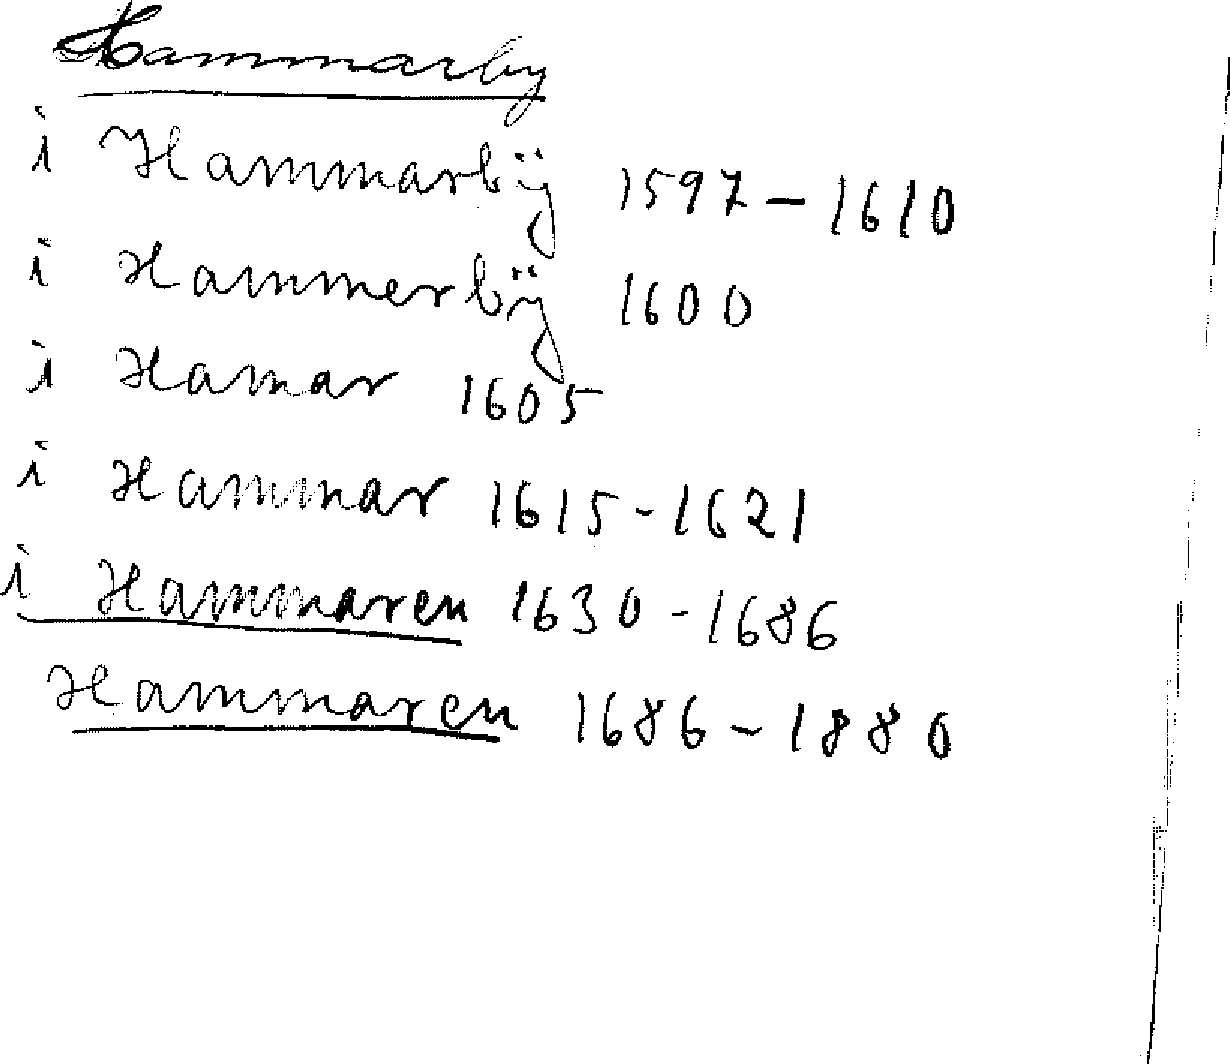 Hammarby
i Hammarbÿ 1597-1610
i Hammerbÿ 1600
i Hamar 1605
i Hammar 1615-1621
i Hammaren 1630-1686
Hammaren 1686-1880